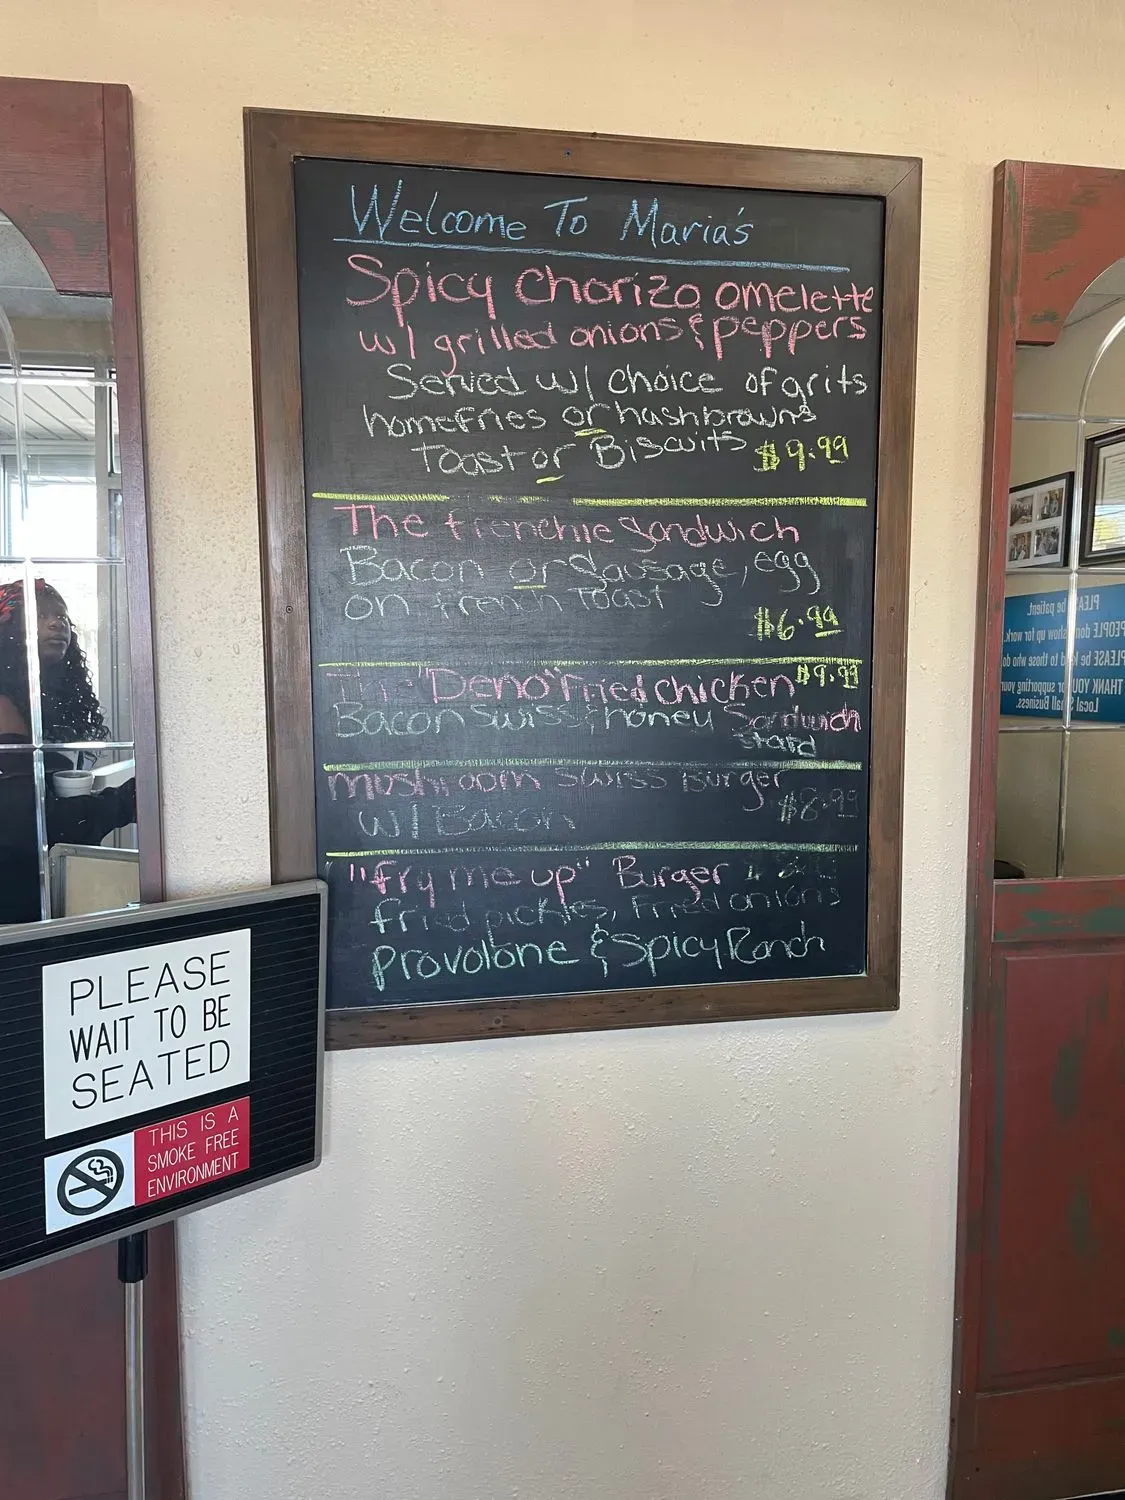 Welcome To Maria's
Spicy Chorizo omelette
w/ grilled onions & peppers
Served w/ choice of grits
homefries or hashbrowns
Toast or Biscuits $9.99
The frenchie Sandwich
Bacon or Sausage, egg
on french Toast
$6.99
The "Deno" Fried chicken $9.99
Bacon Swiss & honey Sandwich
stard
mushroom Swiss Burger
w/ Bacon $8.99
"fry me up" Burger
fried pickles, Fried onions
Provolone & Spicy Ranch
PLEASE
WAIT TO BE
SEATED
THIS IS A
SMOKE FREE
ENVIRONMENT
PLEASE be patient.
PEOPLE don show up for work.
PLEASE be to those who do
THANK YOU or supporting your
Local Business.